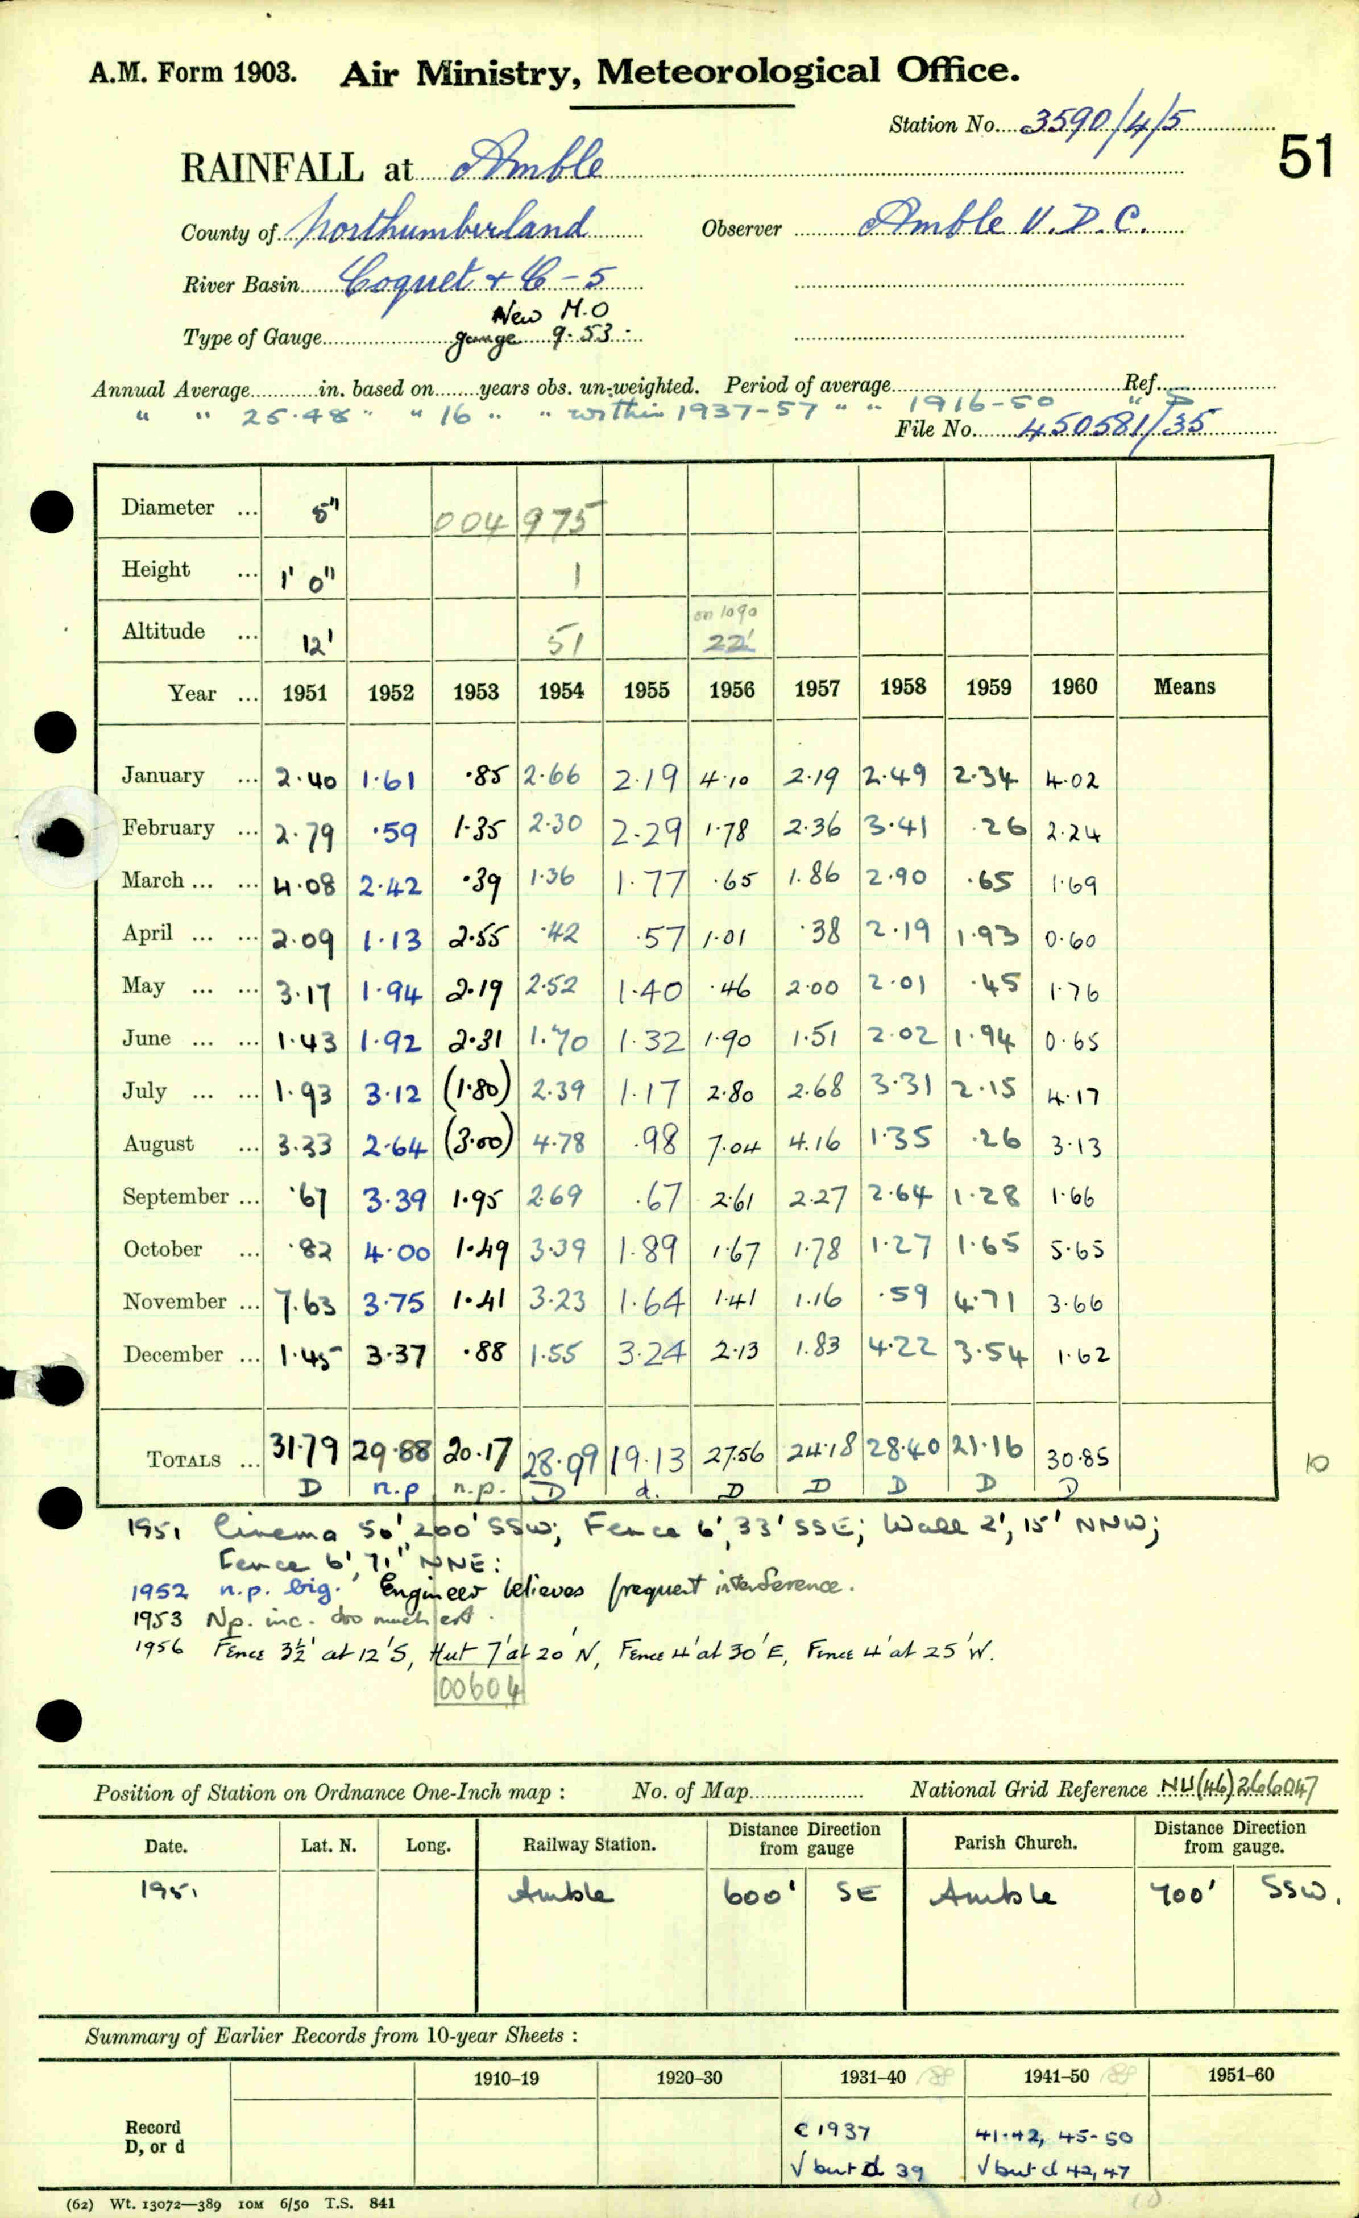 A.M. Form 1903. Air Ministry, Meteorological Office.
Station No. 3590/4/5
51
RAINFALL at Amble
County of Northumberland Observer Amble U.D.C.
River Basin Coquet + C-5
New M.O
Type of Gauge gauge 9.53
Annual Average in. based on years obs. un-weighted. Period of average Ref.
" " 25.48 " " 16 " " within 1937-57 " " 1916-50 " D
File No. 450581/35
Diameter ... 5" 004 975
Height ... 1' 0" 1
on 1090
Altitude ... 12' 51 22'
Year ... 1951 1952 1953 1954 1955 1956 1957 1958 1959 1960 Means
January ... 2.40 1.61 .85 2.66 2.19 4.10 2.19 2.49 2.34 4.02
February ... 2.79 .59 1.35 2.30 2.29 1.78 2.36 3.41 .26 2.24
March ... ... 4.08 2.42 .39 1.36 1.77 .65 1.86 2.90 .65 1.69
April ... ... 2.09 1.13 2.55 .42 .57 1.01 .38 2.19 1.93 0.60
May ... ... 3.17 1.94 2.19 2.52 1.40 .46 2.00 2.01 .45 1.76
June ... ... 1.43 1.92 2.31 1.70 1.32 1.90 1.51 2.02 1.94 0.65
July ... ... 1.93 3.12 (1.80) 2.39 1.17 2.80 2.68 3.31 2.15 4.17
August ... 3.33 2.64 (3.00) 4.78 .98 7.04 4.16 1.35 .26 3.13
September ... .67 3.39 1.95 2.69 .67 2.61 2.27 2.64 1.28 1.66
October ... .82 4.00 1.49 3.39 1.89 1.67 1.78 1.27 1.65 5.65
November ... 7.63 3.75 1.41 3.23 1.64 1.41 1.16 .59 4.71 3.66
December ... 1.45 3.37 .88 1.55 3.24 2.13 1.83 4.22 3.54 1.62
TOTALS ... 31.79 29.88 20.17 28.99 19.13 27.56 24.18 28.40 21.16 30.85
10
D n.p n.p. D d. D D D D D
1951 Cinema 50' 200' SSW; Fence 6', 33' SSE; Wall 2', 15' NNW;
Fence 6', 71" NNE:
1952 n.p. big. Engineer believes frequent interference.
1953 Np. inc. too much est.
1956 Fence 3½' at 12'S, Hut 7' at 20'N, Fence 4' at 30'E, Fence 4' at 25'W.
00604
Position of Station on Ordnance One-Inch map : No. of Map National Grid Reference NU(46)266047
Date. Lat. N. Long. Railway Station. Distance from Direction gauge Parish Church. Distance from Direction gauge.
1951 Amble 600' SE Amble 700' SSW.
Summary of Earlier Records from 10-year Sheets :
1910–19 1920–30 1931–40 1941–50 1951–60
Record
D, or d
C 1937 41.42, 45-50
√ but d 39 √ but d 42, 47
(62) Wt. 13072—389 10M 6/50 T.S. 841